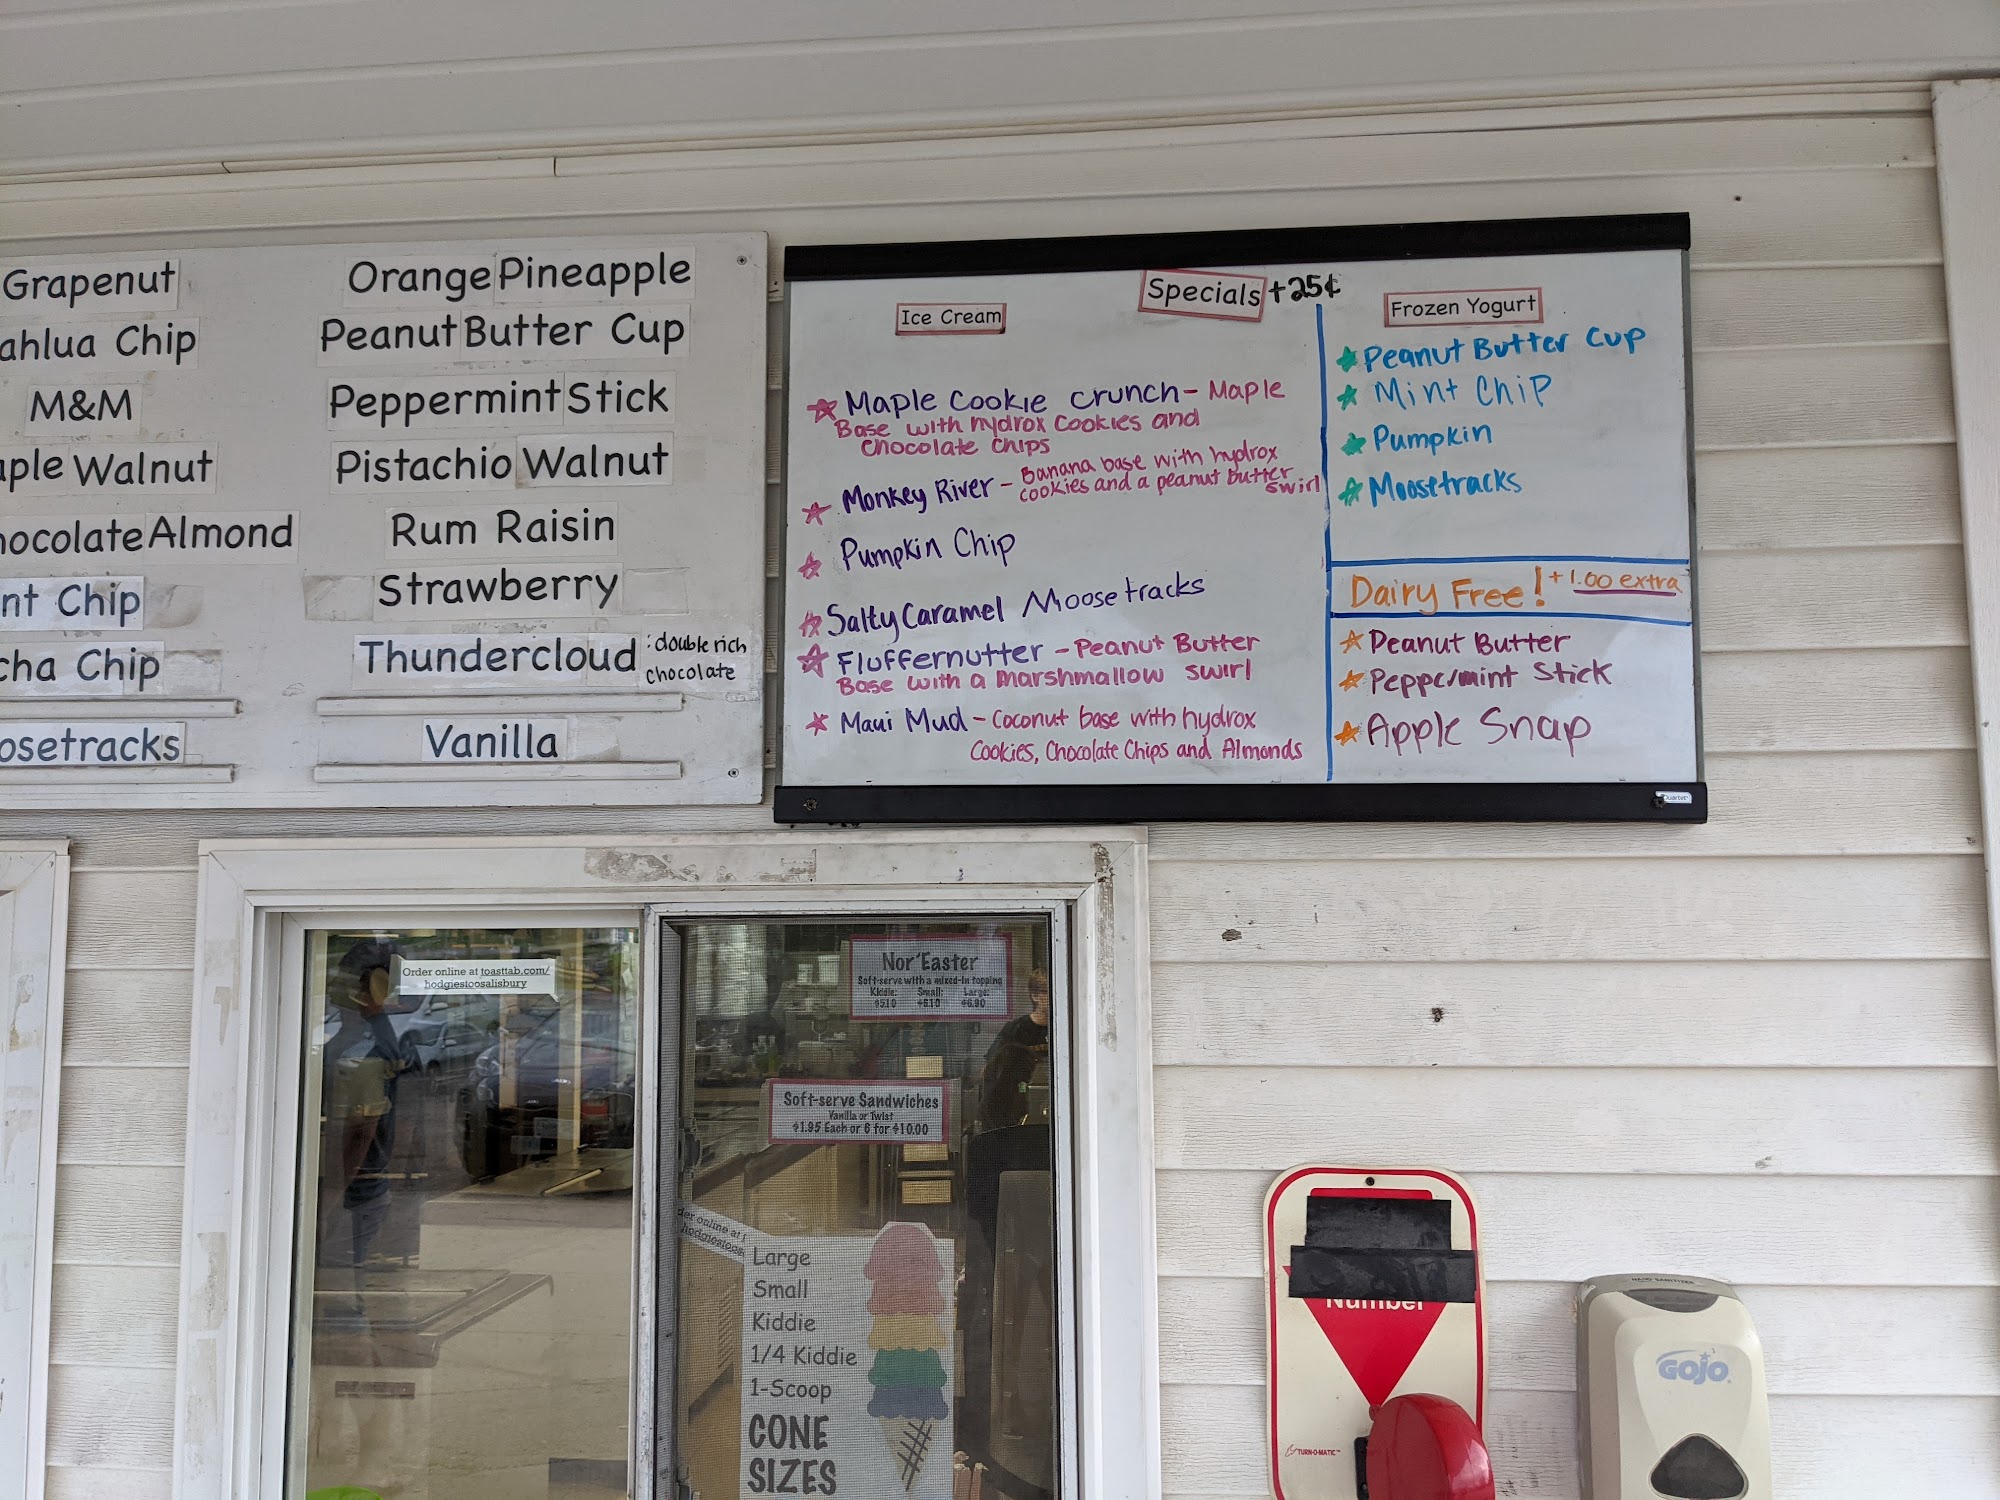 Grapenut
ahlua Chip
M&M
aple Walnut
hocolate Almond
nt Chip
cha Chip
osetracks
Orange Pineapple
Peanut Butter Cup
Peppermint Stick
Pistachio Walnut
Rum Raisin
Strawberry
Thundercloud : double rich
chocolate
Vanilla
Specials +25¢
Ice Cream
Maple Cookie Crunch - Maple
Base with hydrox Cookies and
Chocolate Chips
Monkey River - Banana base with hydrox
cookies and a peanut butter
swirl
Pumpkin Chip
Salty Caramel Moosetracks
Fluffernutter - Peanut Butter
Base with a marshmallow swirl
Maui Mud - Coconut base with hydrox
Cookies, Chocolate Chips and Almonds
Frozen Yogurt
Peanut Butter Cup
Mint Chip
Pumpkin
Moosetracks
Dairy Free! +1.00 extra
Peanut Butter
Peppermint Stick
Apple Snap
Quartet
Order online at toasttab.com/
hodgiestoosalisbury
Nor'Easter
Soft-serve with a mixed-in topping
Kiddie: Small: Large:
$5.10 $6.10 $6.90
Soft-serve Sandwiches
Vanilla or Twist
$1.95 Each or 6 for $10.00
der online at t
hodgiestoos
Large
Small
Kiddie
1/4 Kiddie
1-Scoop
CONE
SIZES
Number
TURN-O-MATIC
HAND SANITIZER
GOJO